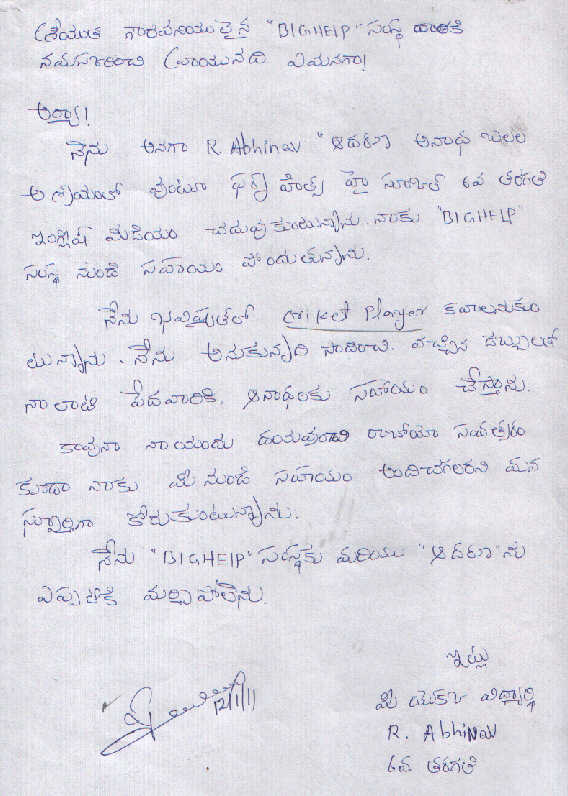 శ్రీయుత గౌరవనీయులైన "BIGHELP" సంస్థ వారికి
నమస్కరించి వ్రాయునది ఏమనగా!
అయ్యా!
నేను అనగా R Abhinav "ఆదరణ అనాథ బాలల
ఆశ్రయంలో వుంటూ హై స్కూల్ 6వ తరగతి
ఇంగ్లీష్ మీడియం చదువుకుంటున్నాను. నాకు "BIGHELP"
సంస్థ నుండి సహాయం పొందుతున్నాను.
నేను భవిష్యత్‌లో criket Player కావాలనుకుం
టున్నాను. నేను అనుకున్నది సాదించి. వచ్చిన డబ్బులతో
నాలాటి పేదవారికి, అనాథలకు సహాయం చేస్తాను.
కావునా నాయందు దయవుంచి రాబోయే సంవత్సరం
కూడా నాకు మీ నుండి సహాయం అందించగలరని మన
స్పూర్తిగా కోరుకుంటున్నాను.
నేను "BIGHELP" సంస్థకు మరియు "ఆదరణ"ను
ఎప్పటికి మర్చిపోలేను.
ఇట్లు
మీ యొక్క విద్యార్థి
R. Abhinav
6వ తరగతి
12/1/11